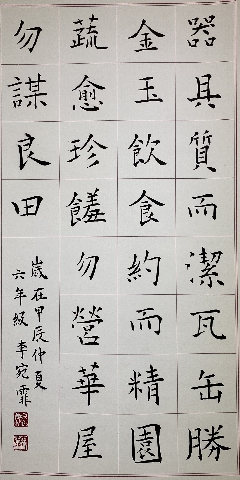 器具質而潔瓦缶勝
金玉飲食約而精園
蔬愈珍饈勿營華屋
勿謀良田
歲在甲辰仲夏
六年級 李宛霏